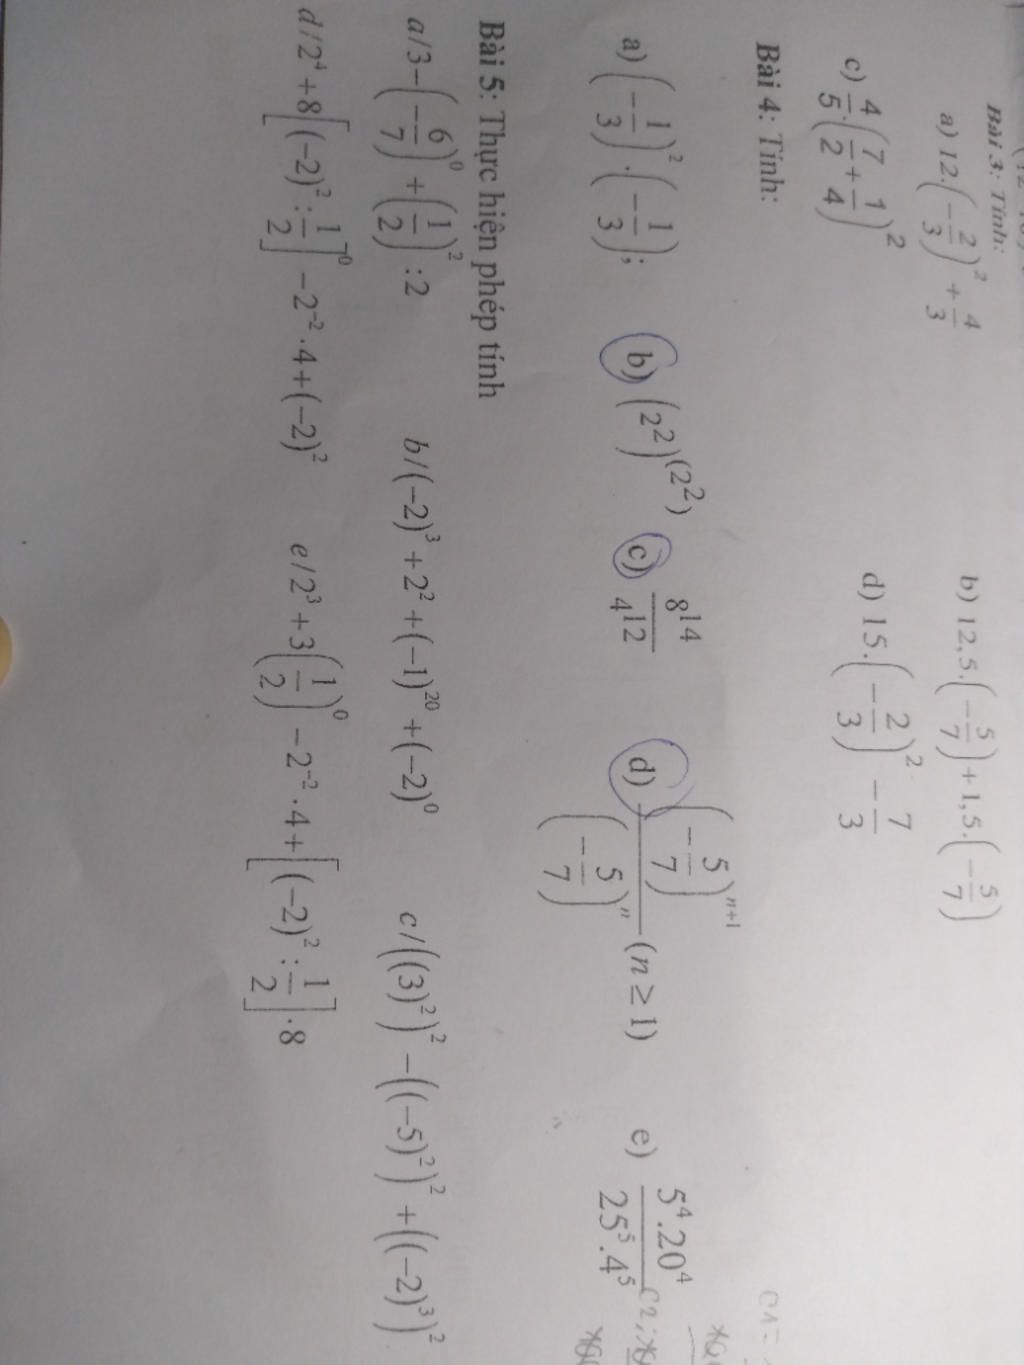 Bài 3: Tính:
a) 12.(-2/3)² + 4/3 b) 12,5.(-5/7) + 1,5.(-5/7)
c) 4/5.(7/2 + 1/4)² d) 15.(-2/3)² - 7/3
Bài 4: Tính:
a) (-1/3)².(-1/3); b) (2²)^(2²) c) 8¹⁴/4¹² d) (-5/7)ⁿ⁺¹/(-5/7)ⁿ (n ≥ 1) e) 5⁴.20⁴/25⁵.4⁵
Bài 5: Thực hiện phép tính
a/ 3-(-6/7)⁰+(1/2)²:2 b/ (-2)³+2²+(-1)²⁰+(-2)⁰ c/ ((3)²)²-((-5)²)²+((-2)³)²
d/ 2⁴+8[(-2)²:1/2]⁰-2⁻².4+(-2)² e/ 2³+3(1/2)⁰-2⁻².4+[(-2)²:1/2].8